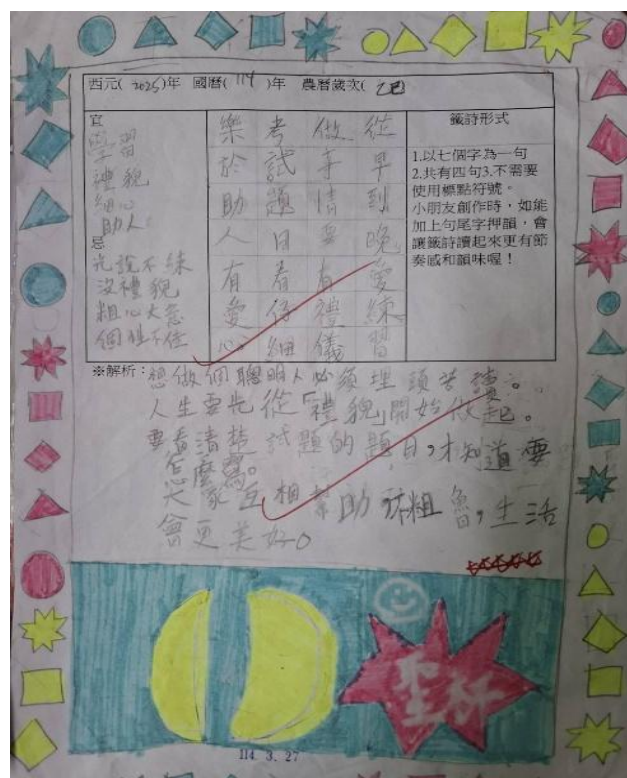 西元( 2025)年 國曆( 114 )年 農曆歲次( 乙巳
宜
學習
禮貌
細心
助人
忌
光說不練
沒禮貌
粗心大意
個性不佳
從早到晚愛練習
做事情要有禮儀
考試題目看仔細
樂於助人有愛心
籤詩形式
1.以七個字為一句
2.共有四句3.不需要
使用標點符號。
小朋友創作時，如能
加上句尾字押韻，會
讓籤詩讀起來更有節
奏感和韻味喔！
※解析：想做個聰明人必須埋頭苦讀。
人生要先從「禮貌」開始做起。
要看清楚試題的題目，才知道要
怎麼寫。
大家互相幫助 粗魯，生活
會更美好。
聖杯
114. 3. 27